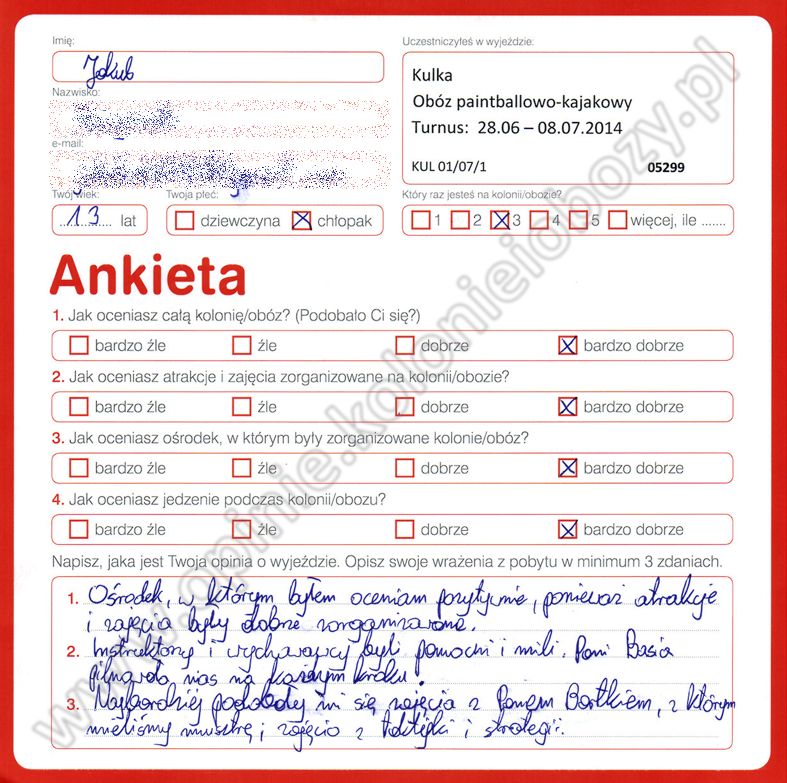 Imię:
Jakub
Uczestniczyłeś w wyjeździe:
Kulka
Obóz paintballowo-kajakowy
Turnus: 28.06 – 08.07.2014
KUL 01/07/1 05299
Nazwisko:
e-mail:
Twój wiek:
13 lat
Twoja płeć:
dziewczyna chłopak
Który raz jesteś na kolonii/obozie?
1 2 3 4 5 więcej, ile .......
Ankieta
1. Jak oceniasz całą kolonię/obóz? (Podobało Ci się?)
bardzo źle źle dobrze bardzo dobrze
2. Jak oceniasz atrakcje i zajęcia zorganizowane na kolonii/obozie?
bardzo źle źle dobrze bardzo dobrze
3. Jak oceniasz ośrodek, w którym były zorganizowane kolonie/obóz?
bardzo źle źle dobrze bardzo dobrze
4. Jak oceniasz jedzenie podczas kolonii/obozu?
bardzo źle źle dobrze bardzo dobrze
Napisz, jaka jest Twoja opinia o wyjeździe. Opisz swoje wrażenia z pobytu w minimum 3 zdaniach.
1. Ośrodek, w którym byłem oceniam pozytywnie, ponieważ atrakcje
i zajęcia były dobrze zorganizowane.
2. Instruktorzy i wychowawcy byli pomocni i mili. Pani Basia
pilnowała nas na każdym kroku!
3. Najbardziej podobały mi się zajęcia z Panem Bartkiem, z którym
mieliśmy musztrę i zajęcia z taktyki i strategii.
www.opinie.kolonieiobozy.pl